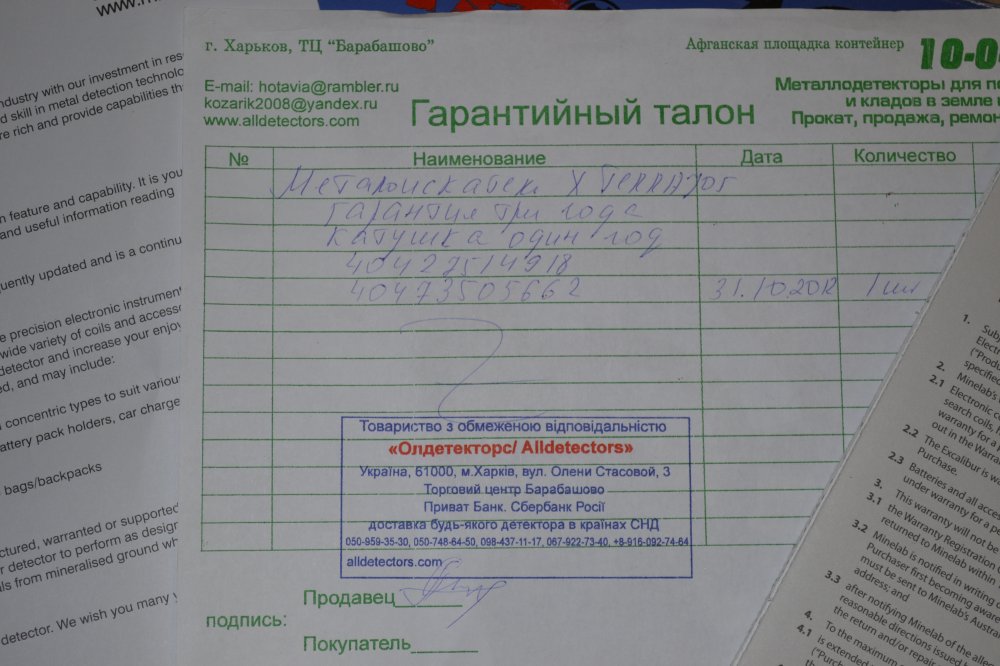 www.m
ndustry with our investment in res
d skill in metal detection technolo
re rich and provide capabilities th
n feature and capability. It is you
and useful information reading
uently updated and is a continu
e precision electronic instrument
wide variety of coils and accesso
detector and increase your enjoy
ed, and may include:
d concentric types to suit variou
attery pack holders, car charge
bags/backpacks
ctured, warranted or supported
r detector to perform as design
ls from mineralised ground wh
detector. We wish you many y
г. Харьков, ТЦ "Барабашово"
Афганская площадка контейнер 10-0
E-mail: hotavia@rambler.ru
kozarik2008@yandex.ru
www.alldetectors.com
Гарантийный талон
Металлодетекторы для по
и кладов в земле и
Прокат, продажа, ремон
№ Наименование Дата Количество
Металоискатель X Терра 705
гарантия три года
катушка один год
40423514918
40473505662 31.10.2012 1 шт
Товариство з обмеженою відповідальністю
«Олдетекторс/ Alldetectors»
Україна, 61000, м.Харків, вул. Олени Стасової, 3
Торговий центр Барабашово
Приват Банк. Сбербанк Росії
доставка будь-якого детектора в країнах СНД
050-959-35-30, 050-748-64-50, 098-437-11-17, 067-922-73-40, +8-916-092-74-64
alldetectors.com
Продавец
подпись:
Покупатель
1. Subj
Elect
("Produ
specified
2. Minelab's
2.1 Electronic co
search coils, h
warranty for a
out in the Warra
2.2 The Excalibur is wa
Purchase.
2.3 Batteries and all acces
under warranty for a pe
3. This warranty will not be
3.1 the Warranty Registration
returned to Minelab within
3.2 Minelab is notified in writing o
Purchaser first becoming aware
must be sent to Minelab's Austra
address; and
3.3 after notifying Minelab of the alle
reasonable directions issued b
the return and/or repair
4. To the maximum
4.1 is extended
("Purch